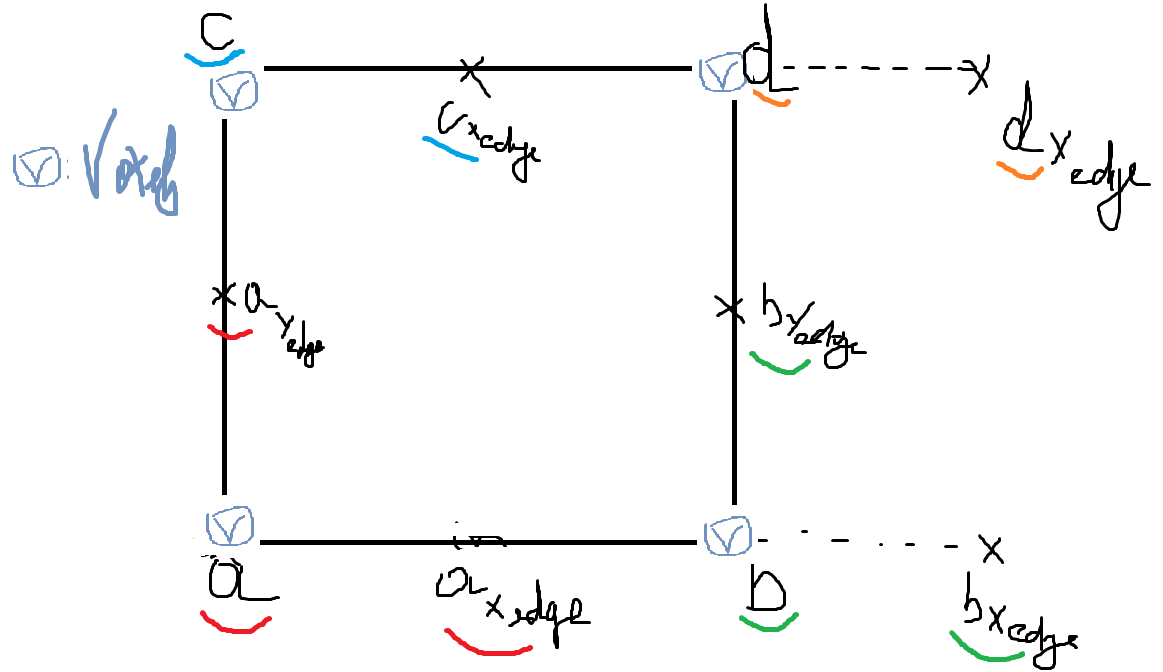 c
d
c x edge
d x edge
V: Voxel
a y edge
b y edge
a
a x edge
b
b x edge